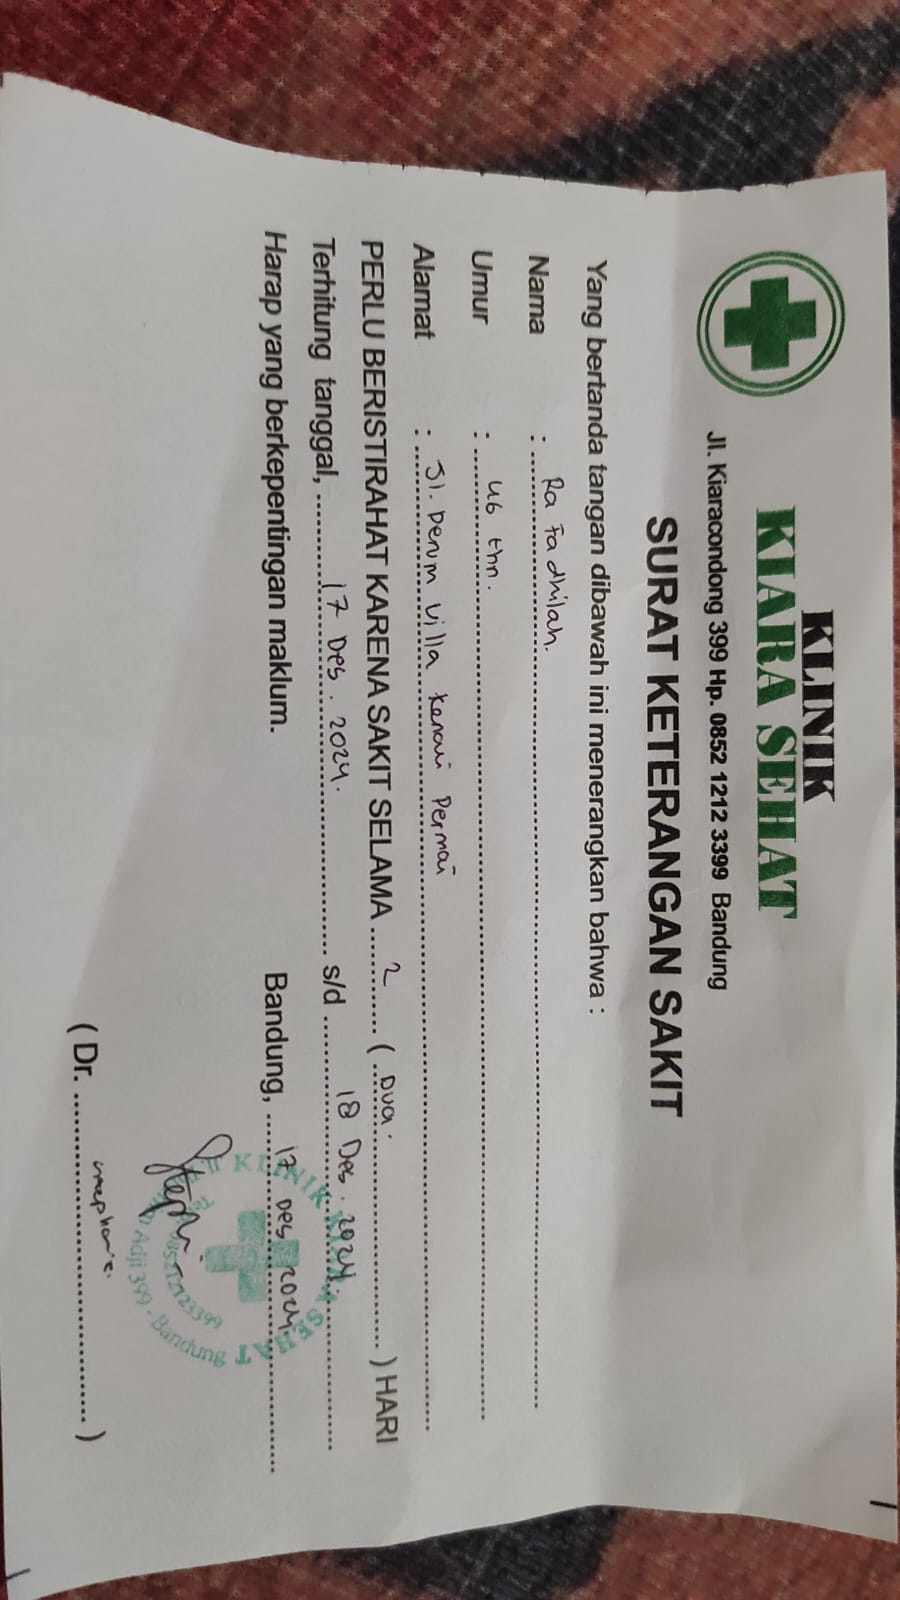 KLINIK
KIARA SEHAT
Jl. Kiaracondong 399 Hp. 0852 1212 3399 Bandung
SURAT KETERANGAN SAKIT
Yang bertanda tangan dibawah ini menerangkan bahwa :
Nama : Ra Fadhilah.
Umur : 46 thn.
Alamat : Jl. Derum Villa Kenari Permai
PERLU BERISTIRAHAT KARENA SAKIT SELAMA 2 ( Dua. ) HARI
Terhitung tanggal, 17 Des. 2024. s/d 18 Des. 2024.
Harap yang berkepentingan maklum.
Bandung, 17 Des 2024.
KLINIK KIARA SEHAT
Adji 399 - Bandung
( Dr. )